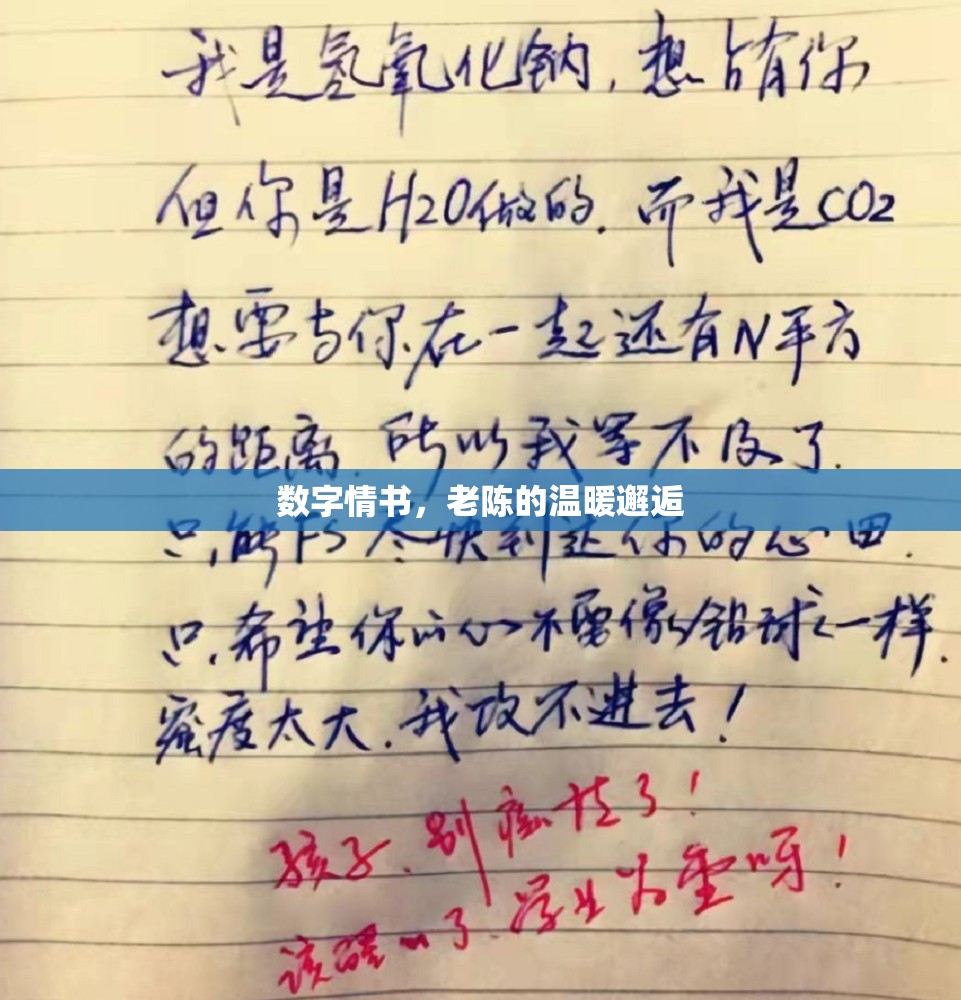 我是氢氧化钠,想占有你
但你是H2O做的.而我是CO2
想要与你在一起还有N平方
的距离.所以我等不及了.
数字情书，老陈的温暖邂逅
只能FS尽快到达你的心田.
只希望你的心不要像铅球一样.
密度太大.我攻不进去!
孩子.别痴情了!
该醒醒了.学业为重呀!